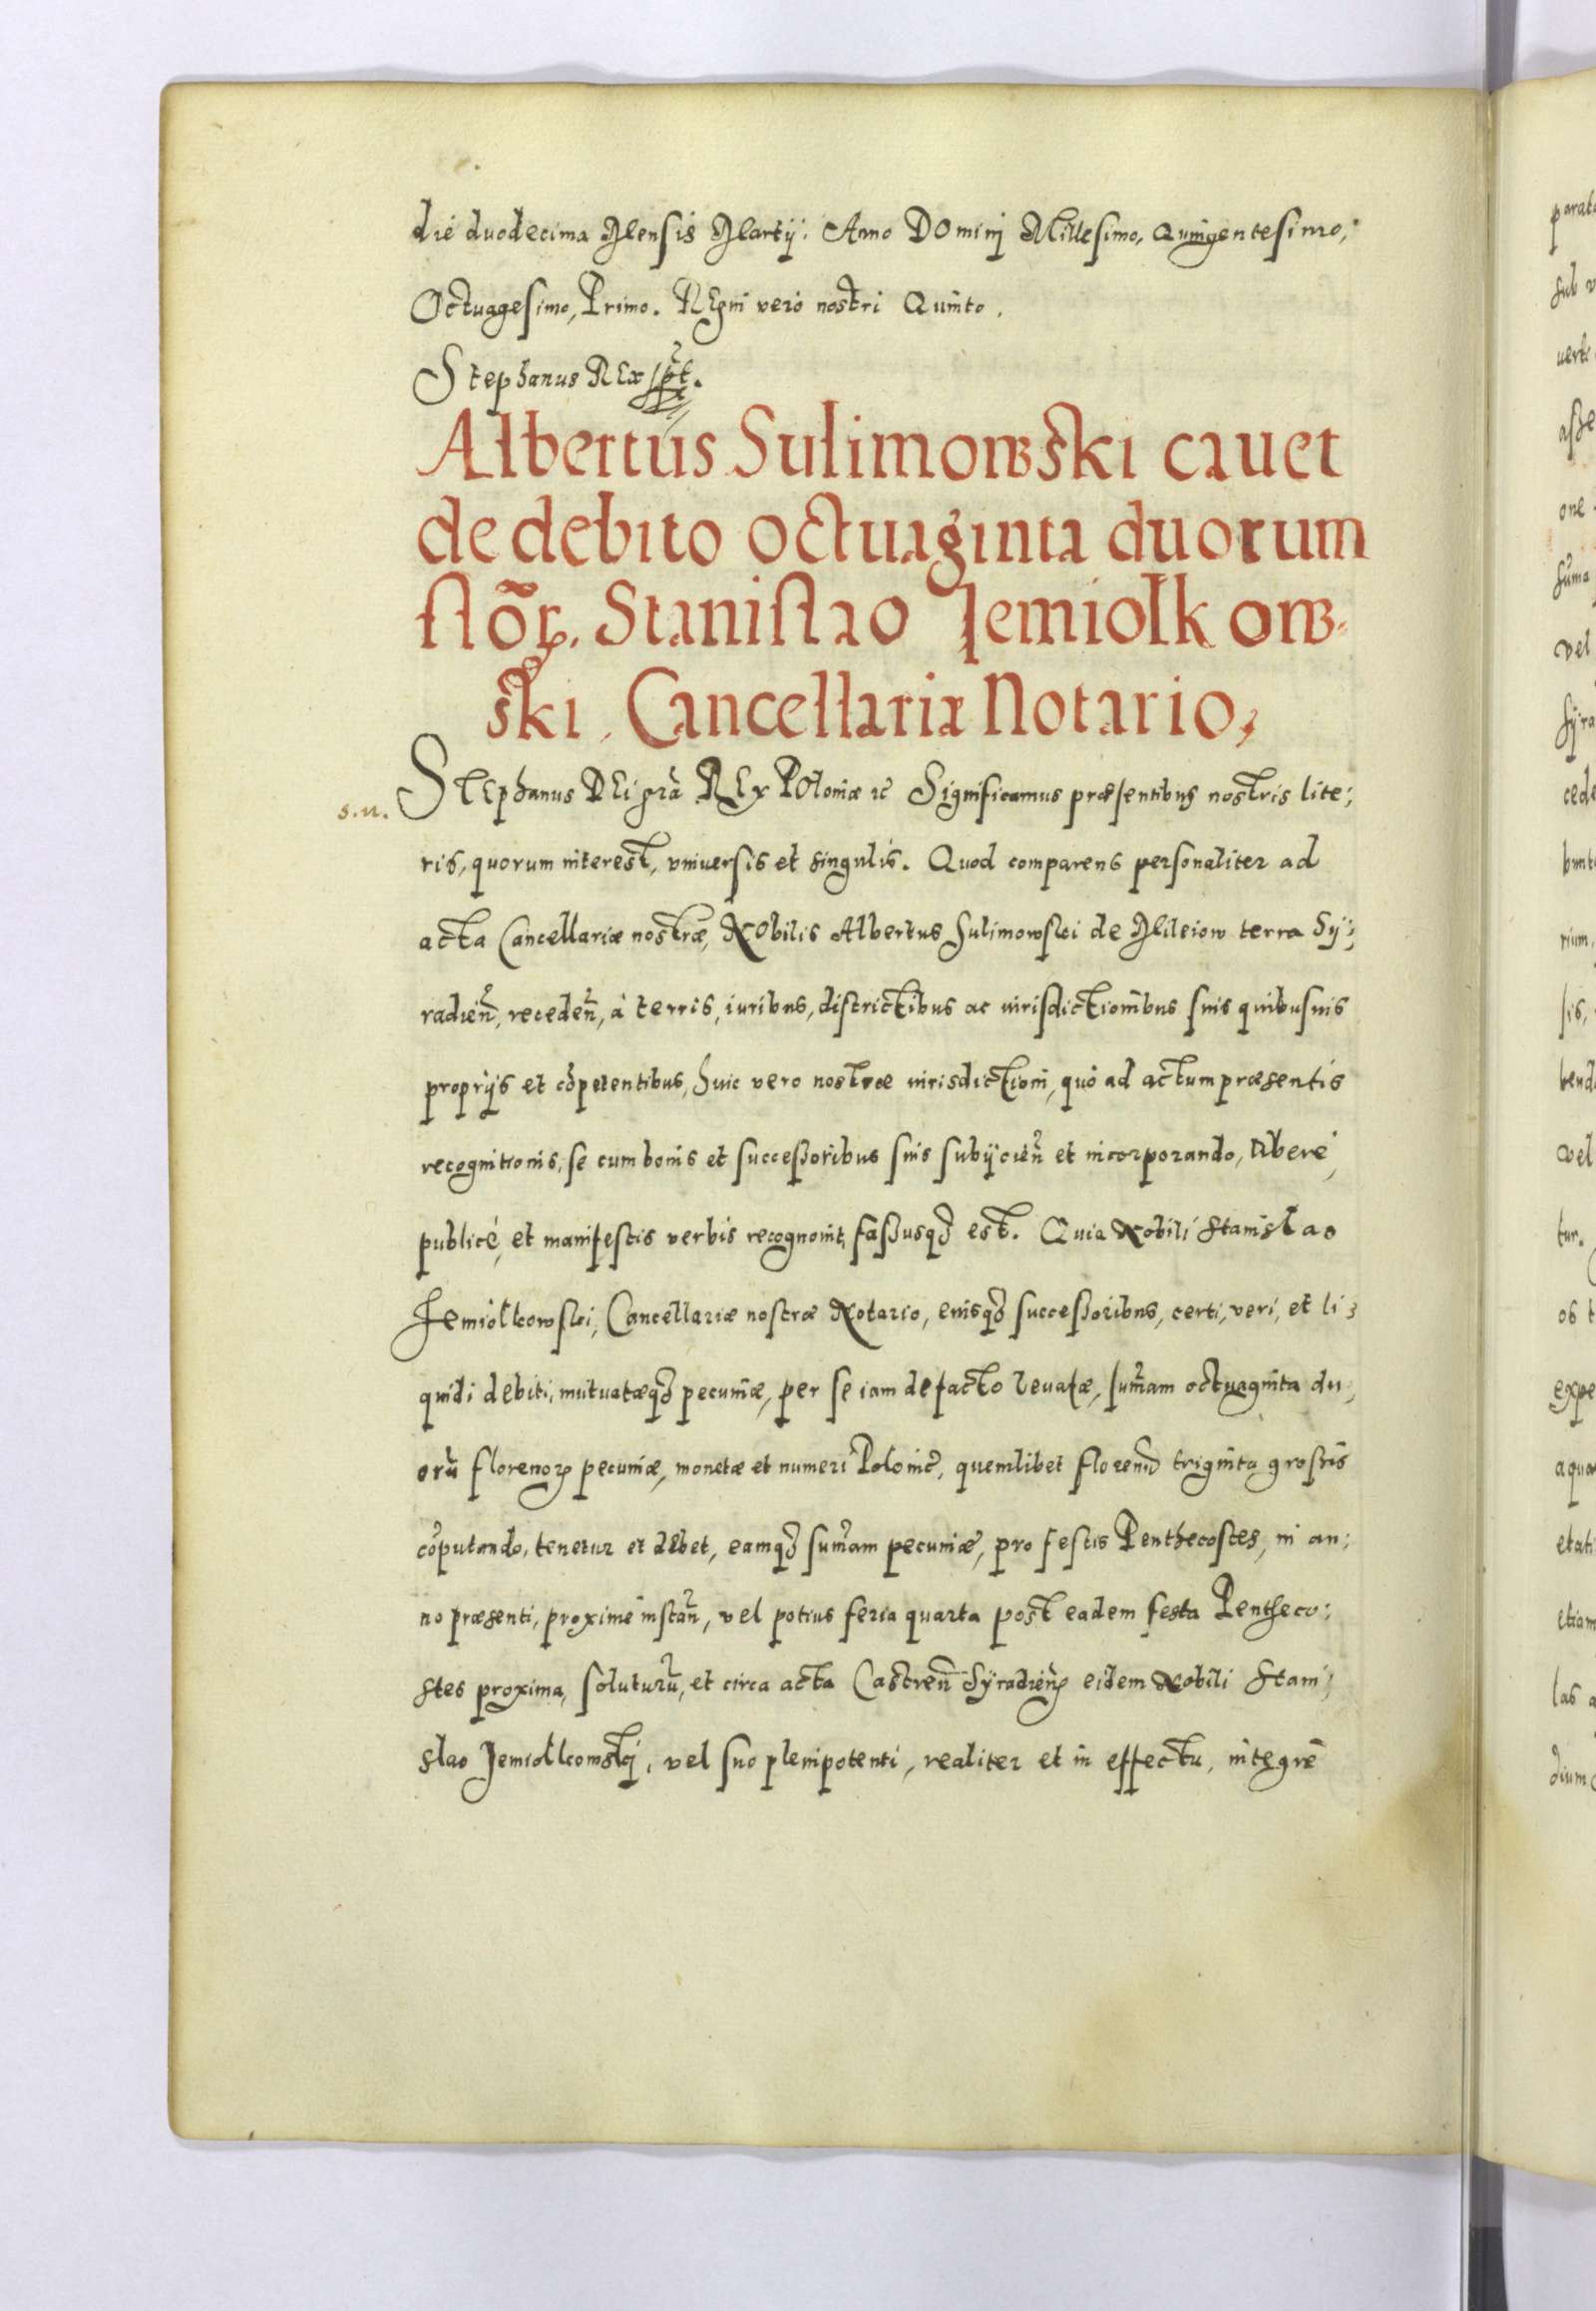 die duodecima Mensis Martij. Anno DOminj Millesimo, Quingentesimo,
Octuagesimo, Primo. REgni vero nostri Quinto.
Stephanus REx sst.
Albertus Sulimowski cauet
de debito octuaginta duorum
flõꝝ. Stanislao Jemiolkow-
ski, Cancellariæ Notario,
s. n.
STEphanus DEi grã REx POloniæ ꝛc Significamus præsentibus nostris lite:
ris, quorum interest, vniuersis et singulis. Quod comparens personaliter ad
acta Cancellariæ nostræ, NObilis Albertus Sulimowski de Mileiow terra Sy:
radień, recedeñ, à terris, iuribus, districtibus ac iurisdictionibus suis quibusuis
proprijs et cõpetentibus, huic vero nostræ iurisdictioni, quò ad actum præsentis
recognitionis, se cum bonis et successoribus suis subijcień et incorporando, libere,
publicè, et manifestis verbis recognouit, fassusqꝫ est. Quia Nobili Stanislao
Jemiolkowski, Cancellariæ nostræ Notario, eiusqꝫ successoribus, certi, veri, et li:
quidi debiti, mutuatæqꝫ pecuniæ, per se iam de facto leuatæ, sum̃am octuaginta du:
orũ florenoꝝ pecuniæ, monetæ et numeri Polonic̃, quemlibet florenũ triginta grossis
cõputando, tenetur et debet, eamqꝫ sum̃am pecuniæ, pro festis Penthecostes, in an:
no præsenti, proxime instań, vel potius feria quarta post eadem festa Pentheco:
stes proxima, soluturũ, et circa acta Castreñ Syradień, eidem Nobili Stani:
slao Jemiolkowskj, vel suo plenipotenti, realiter et in effectu, integrè